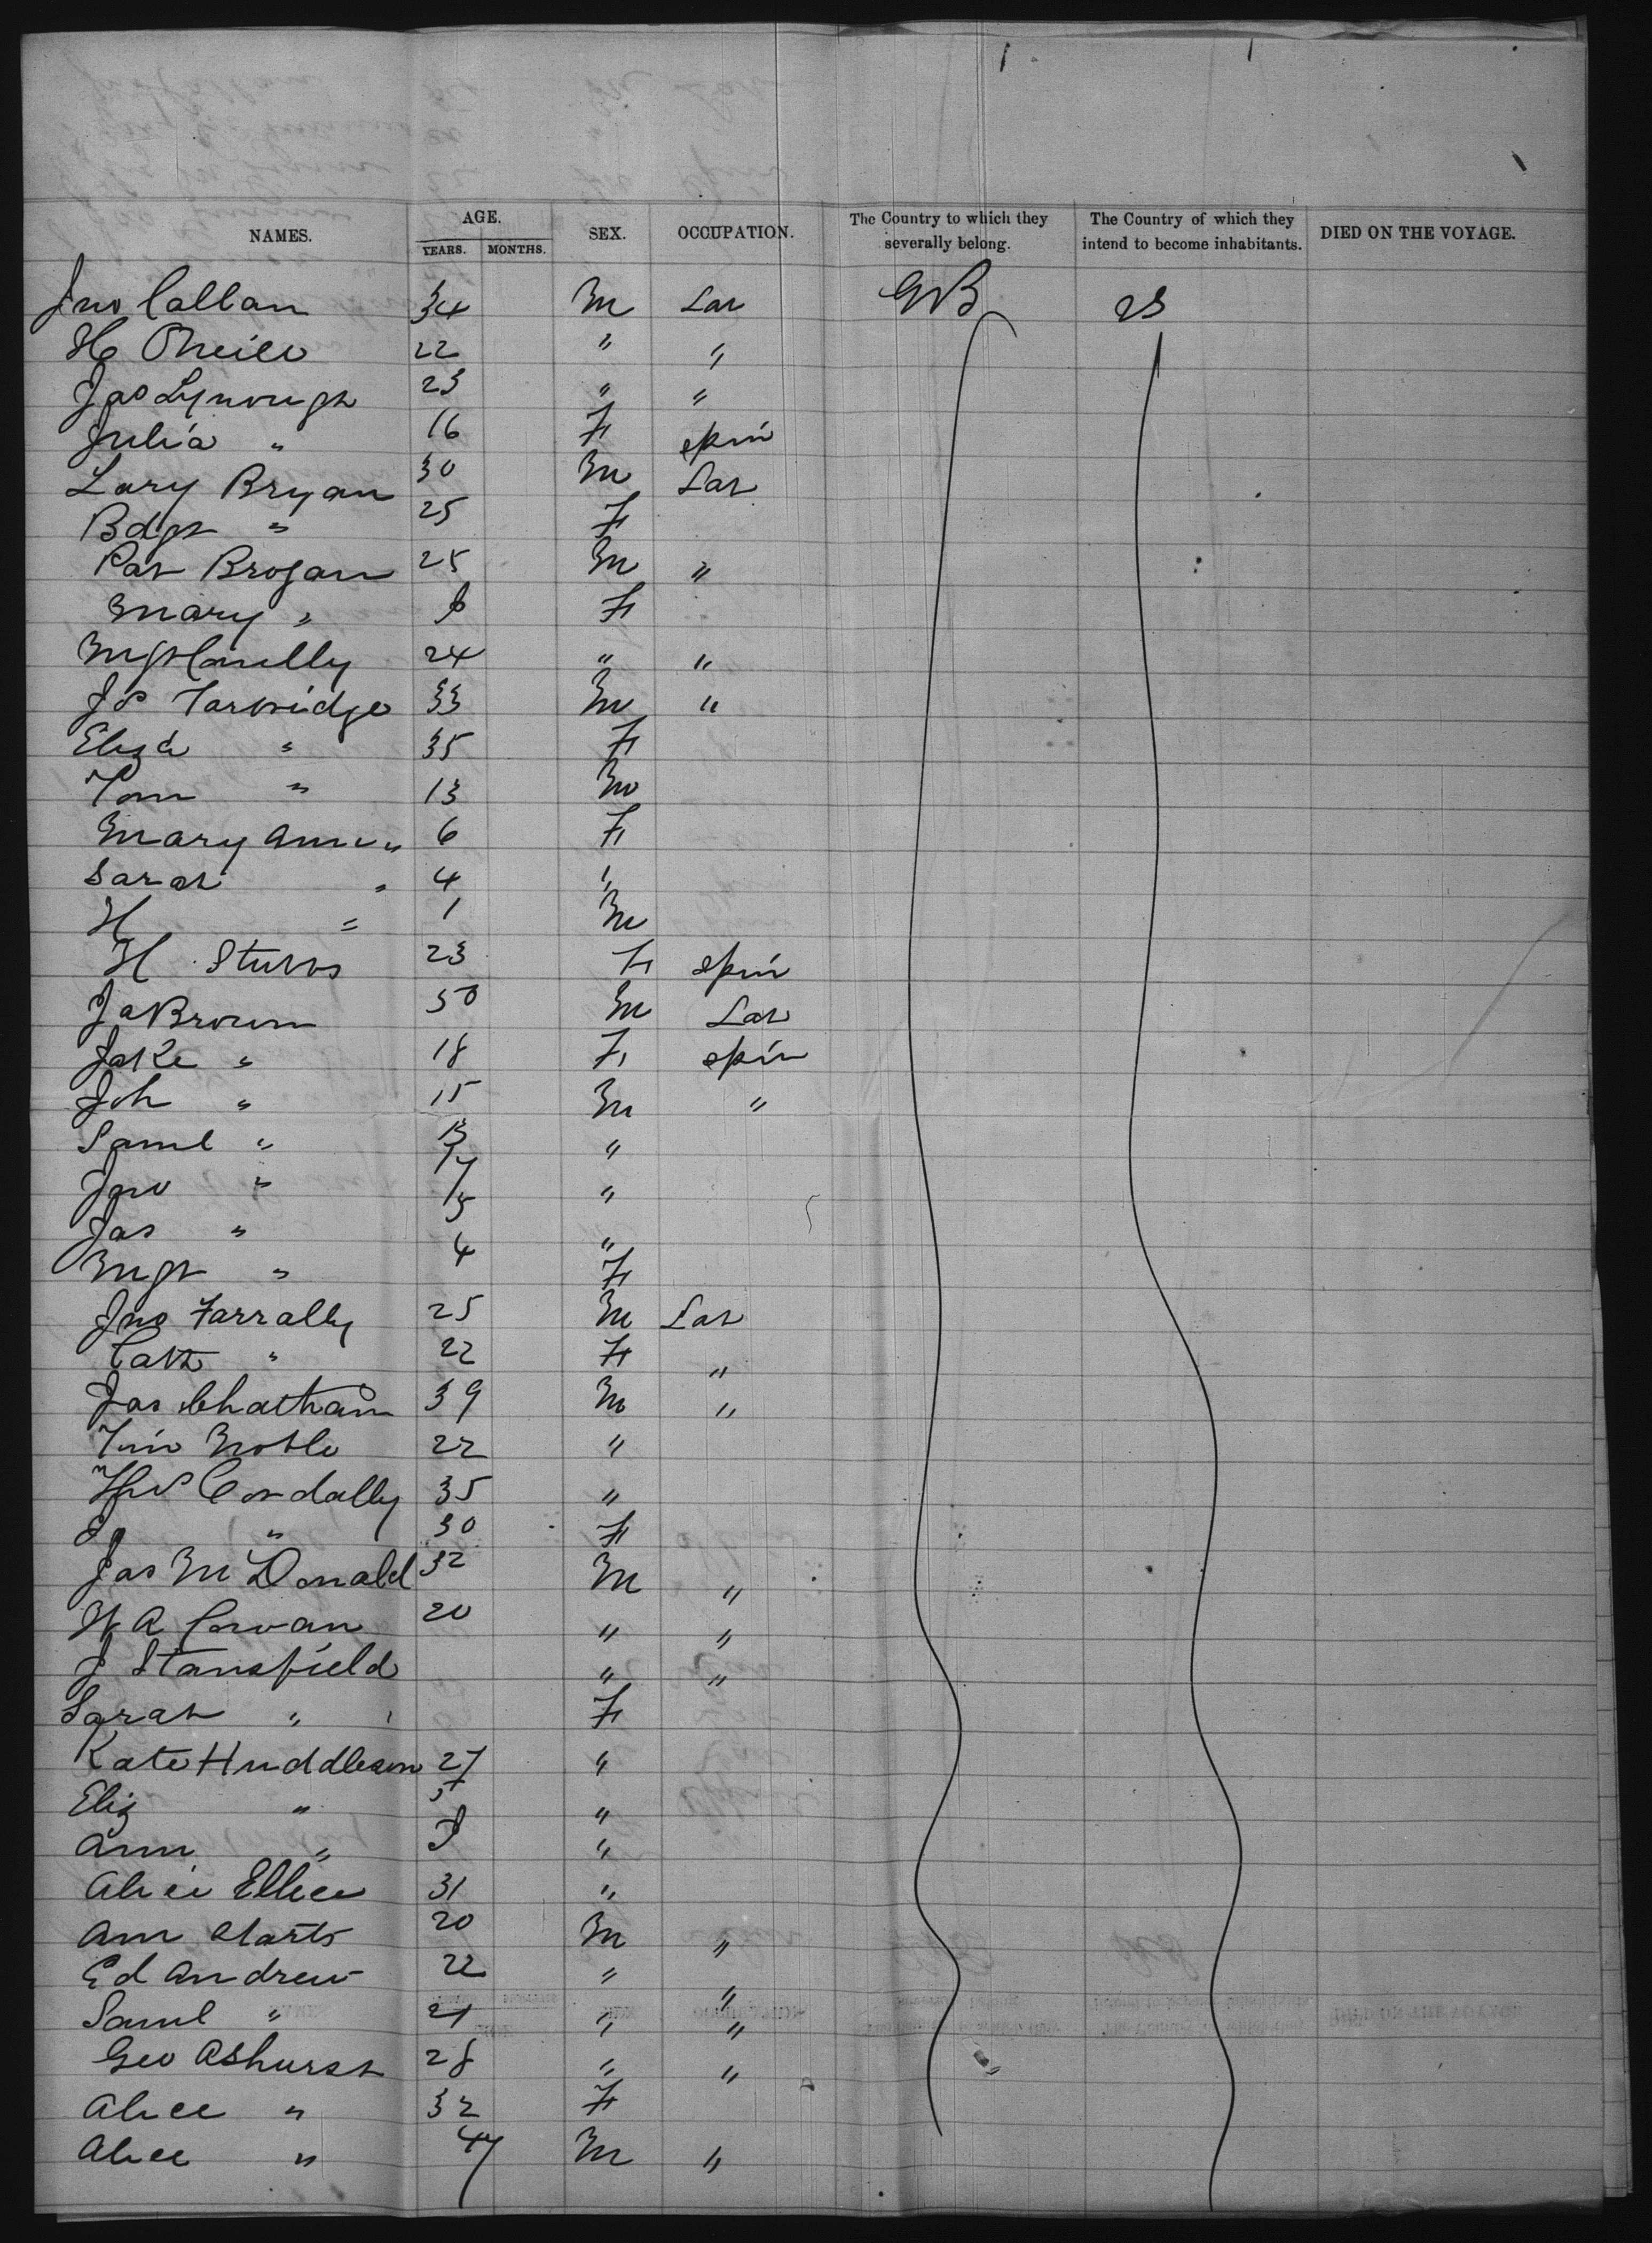 NAMES. AGE. YEARS. MONTHS. SEX. OCCUPATION. The Country to which they severally belong. The Country of which they intend to become inhabitants. DIED ON THE VOYAGE.
Jno Callan 34 M Lab GB US
H O'Neill 22 " "
Jas Lynough 23 " "
Julia " 16 F spin
Lary Bryan 30 M Lab
Bdgt " 25 F
Pat Brogan 25 M "
Mary " F
Mgt Conelly 24 " "
Js Tarbridge 33 M "
Eliza " 35 F
Tom " 13 M
Mary Ann " 6 F
Sarah " 4 "
H " 1 M
H Stubbs 23 F spin
Ja Brown 50 M Lab
Jake " 18 F spin
Joh " 15 M "
Saml " 13 "
Jno " 7 "
Jas " 5 "
Mgt " 4 F
Jno Farrally 25 M Lab
Cath " 22 F "
Jas Chatham 39 M "
Tim Noble 22 "
Ths Cordally 35 "
" 30 F
Jas McDonald 32 M "
W A Cowan 20 " "
J Stansfield " "
Sarah " F
Kate Huddleson 27 "
Eliz " 5 "
Ann " "
Alice Ellice 31 "
Ann 20 M "
Ed Andrew 22 " "
Saml " 21 " "
Geo Ashurst 28 " "
Alice " 32 F
Alice " M "